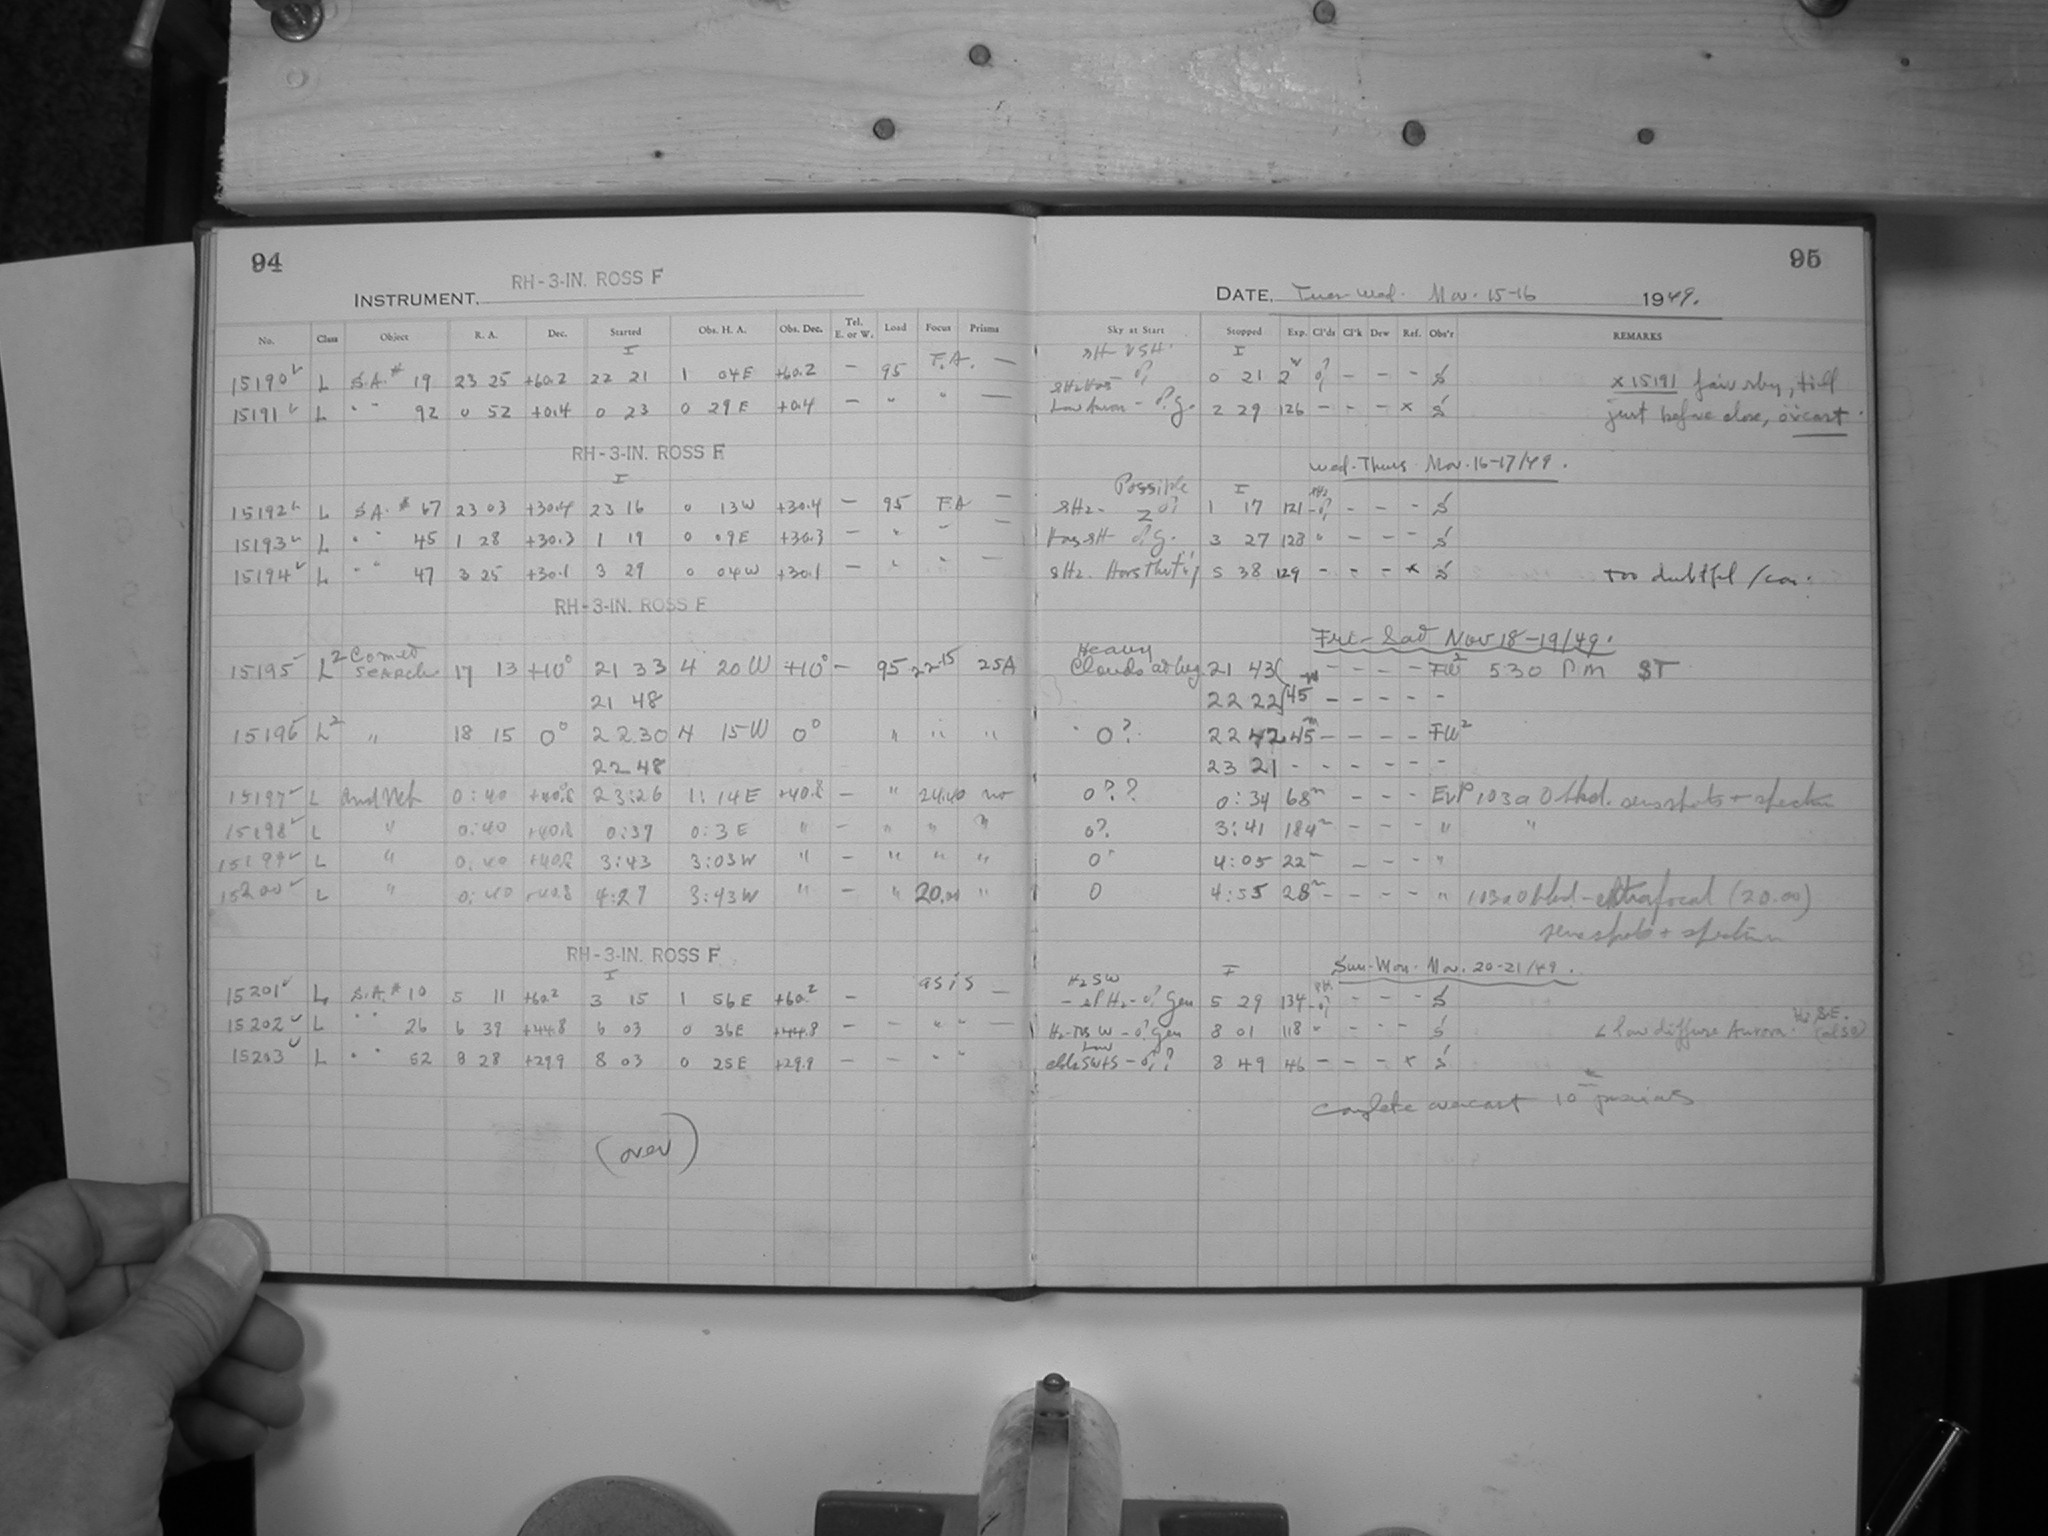 94
95
INSTRUMENT, RH-3-IN. ROSS F
DATE, Tues-Wed. Nov. 15-16 1949.
No. Class Object R. A. Dec. Started Obs. H. A. Obs. Dec. Tel. E. or W. Load Focus Prisms Sky at Start Stopped Exp. Cl'ds Cl'k Dew Ref. Obs'r REMARKS
15190 L S.A. # 19 23 25 +60.2 22 21 1 04E +60.2 — 95 F.A. — 0 21 2 - - - S x 15191 fair sky, till
15191 L " " 92 0 52 +0.4 0 23 0 29E +0.4 — " " — 2 29 126 - - - x S just before close, o'vcast.
RH-3-IN. ROSS F
Wed-Thurs. Nov. 16-17/49.
15192 L S.A. # 67 23 03 +30.4 23 16 0 13W +30.4 — 95 F.A — Possible 1 17 121 - - - S
15193 L " " 45 1 28 +30.3 1 19 0 09E +30.3 — " " — 3 27 128 " - - - S
15194 L " " 47 3 25 +30.1 3 29 0 04W +30.1 — " " — 5 38 129 - - - x S too
RH-3-IN. ROSS F
Fri-Sat Nov 18-19/49.
15195 L2 Comet Search 17 13 +10° 21 33 4 20W +10° — 95 22.15 25A Heavy Clouds 21 43 - - - - FW2 5:30 PM ST
21 48 22 22 45 - - - - -
15196 L2 " 18 15 0° 22 30 4 15W 0° " " " 0? 22 42 45m - - - - FW2
22 48 23 21 - - - - - -
15197 L And Neb 0:40 +40.8 23:26 1:14E +40.8 — " 24.40 no 0?? 0:34 68m - - - EvP 103aO bkd. sens spots + spectrum
15198 L " 0:40 +40.8 0:37 0:3E " — " " " 0? 3:41 184m - - - " "
15199 L " 0:40 +40.8 3:43 3:03W " — " " " 0 4:05 22m - - - "
15200 L " 0:40 +40.8 4:27 3:43W " — " 20.00 " 0 4:55 28m - - - - " 103aO bkd - extrafocal (20.00)
sens spots + spectrum
RH-3-IN. ROSS F
Sun-Mon. Nov. 20-21/49.
15201 L S.A. # 10 5 11 +60.2 3 15 1 56E +60.2 — as is — 5 29 134 - - - S
15202 L " " 26 6 39 +44.8 6 03 0 36E +44.8 — — " " — 8 01 118 " - - - S Low diffuse Aurora. (also)
15203 L " " 52 8 28 +29.9 8 03 0 25E +29.9 — — " " 8 49 46 - - - x S
Complete overcast 10
(over)